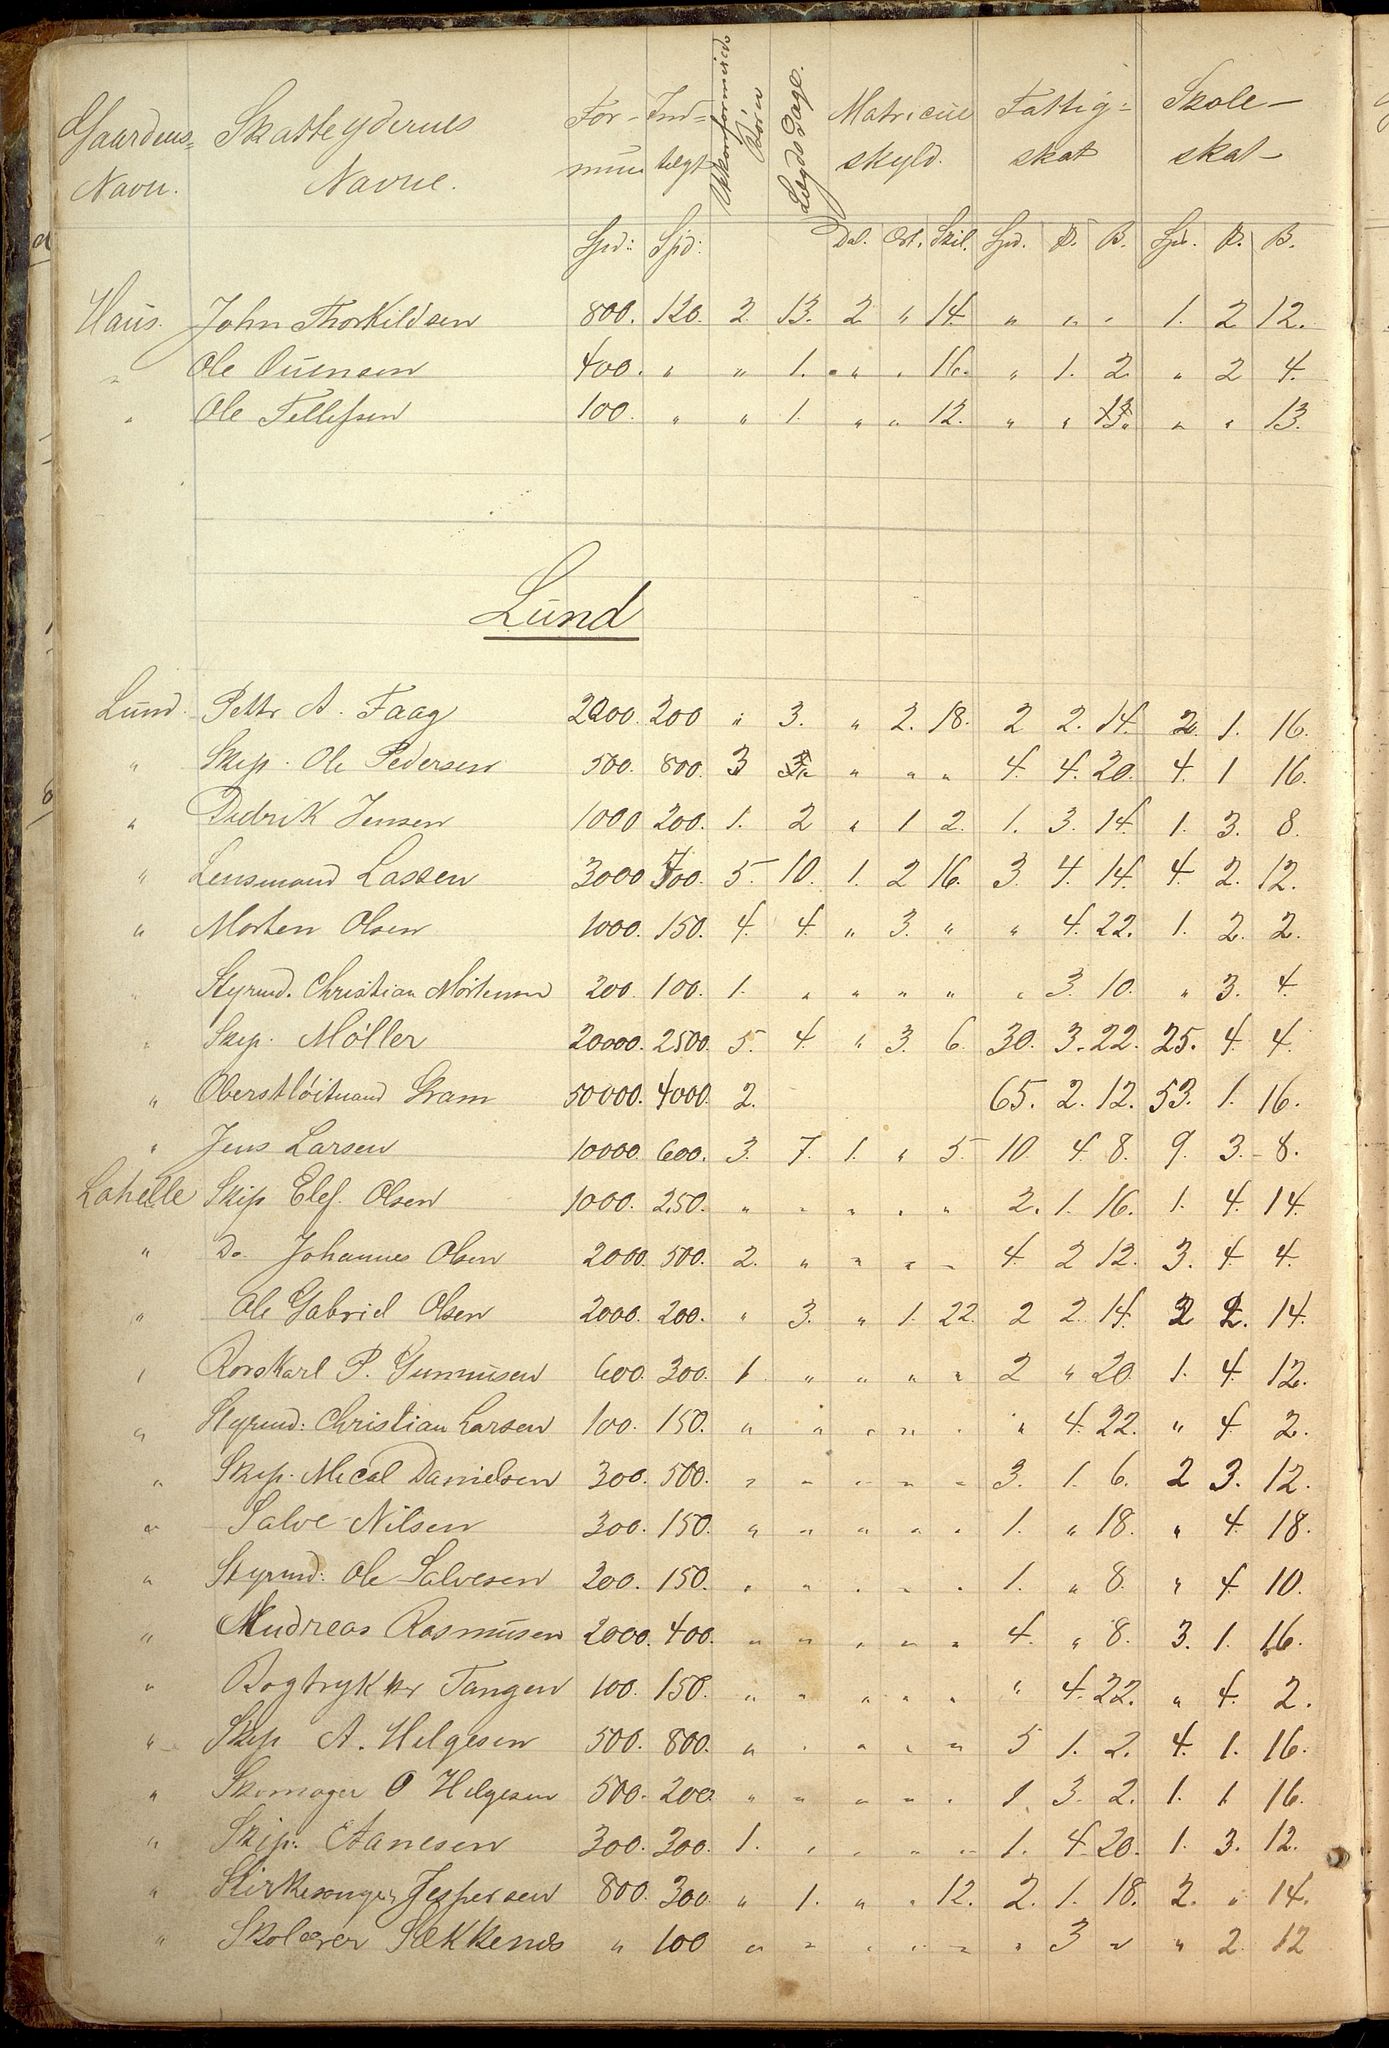 Gaardens= Skatteydernes For- Ind= Ukkonformirede Børn Lægds Dage. Matricul Fattig= Skole-
Navn. Navne. mue tægt skyld. skat skat-
Spd: Spd: Dal. Ort. Skil. Spd. B. Spd. B.
Haus. John Thorkildsen 800. 120. 2. 13. 2 " 14. " " " 1. 2 12.
" Ole Ouensen 400. " " 1. " " 16. " 1. 2 " 2 4.
" Ole Tellefsen 100. " " 1. " " 12. " " " " 13.
Lund
Lund. Pettr A. Faag 2200. 200 " 3. " 2. 18. 2 2. 14. 2. 1. 16.
" Skip. Ole Pedersen 500. 800. 3 " " " 4. 4. 20. 4. 1 16.
" Didrik Jensen 1000 200. 1. 2 " 1 2. 1. 3. 14. 1. 3. 8.
" Lensmand Lassen 3000 5. 10. 1. 2 16. 3. 4. 14. 4. 2. 12.
" Morten Olsen 1000. 150. 4. 4. " 3. " " 4. 22. 1. 2. 2.
" Styrmd. Christian Mortensen 200. 100. 1. " " " " " 3. 10. " 3. 4.
" Skip. Møller 20000. 2500. 5. 4. " 3. 6. 30. 3. 22. 25. 4. 4.
" Oberstløitnand Gram 50000. 4000. 2. 65. 2. 12. 53. 1. 16.
" Jens Larsen 10000. 600. 3. 7. 1. " 5 10. 4. 8. 9. 3. 8.
Lahelle Skip Elef. Olsen 1000. 250. " " " " " 2. 1. 16. 1. 4. 14.
" Do Johannes Olsen 2000. 500. 2. " " " " 4. 2 12. 3. 4. 4.
" Ole Gabriel Olsen 2000. 200. " 3. " 1. 22. 2 2. 14. 2 2. 14.
" Rorskarl P. Gunnusen 600. 300. 1 " " " " 2 " 20. 1. 4. 12.
" Styrmd: Christian Larsen 100. 150. " " " " " " 4. 22. " 4. 2.
" Skip. Mical Danielsen 300. 500. " " " " " 3. 1. 6. 2 3. 12.
" Salve Nilsen 300. 150. " " " " " 1. " 18. " 4. 18.
" Styrmd: Ole Salvesen 200. 150. " " " " " 1. " 8. " 4. 10.
" Andreas Rasmusen 2000. 400. " " " " " 4. " 8. 3. 1. 16.
" Bogtrykker Tangen 100. 150. " " " " " " 4. 22. " 4. 2.
" Skip A. Helgesen 500. 800. " " " " " 5 1. 2. 4. 1. 16.
" Skomager O Helgesen 500. 200. " " " " " 1. 3. 2. 1. 1 16.
" Skip. Aanesen 300. 300. 1. " " " " 1. 4. 20. 1. 3. 12.
" Kirkesanger Jespersen 800. 300 " 1. " " 12. 2. 1. 18. 2. " 14.
" Skolærer Sækkenes " 100 " " " " " " 3 " " 2. 12